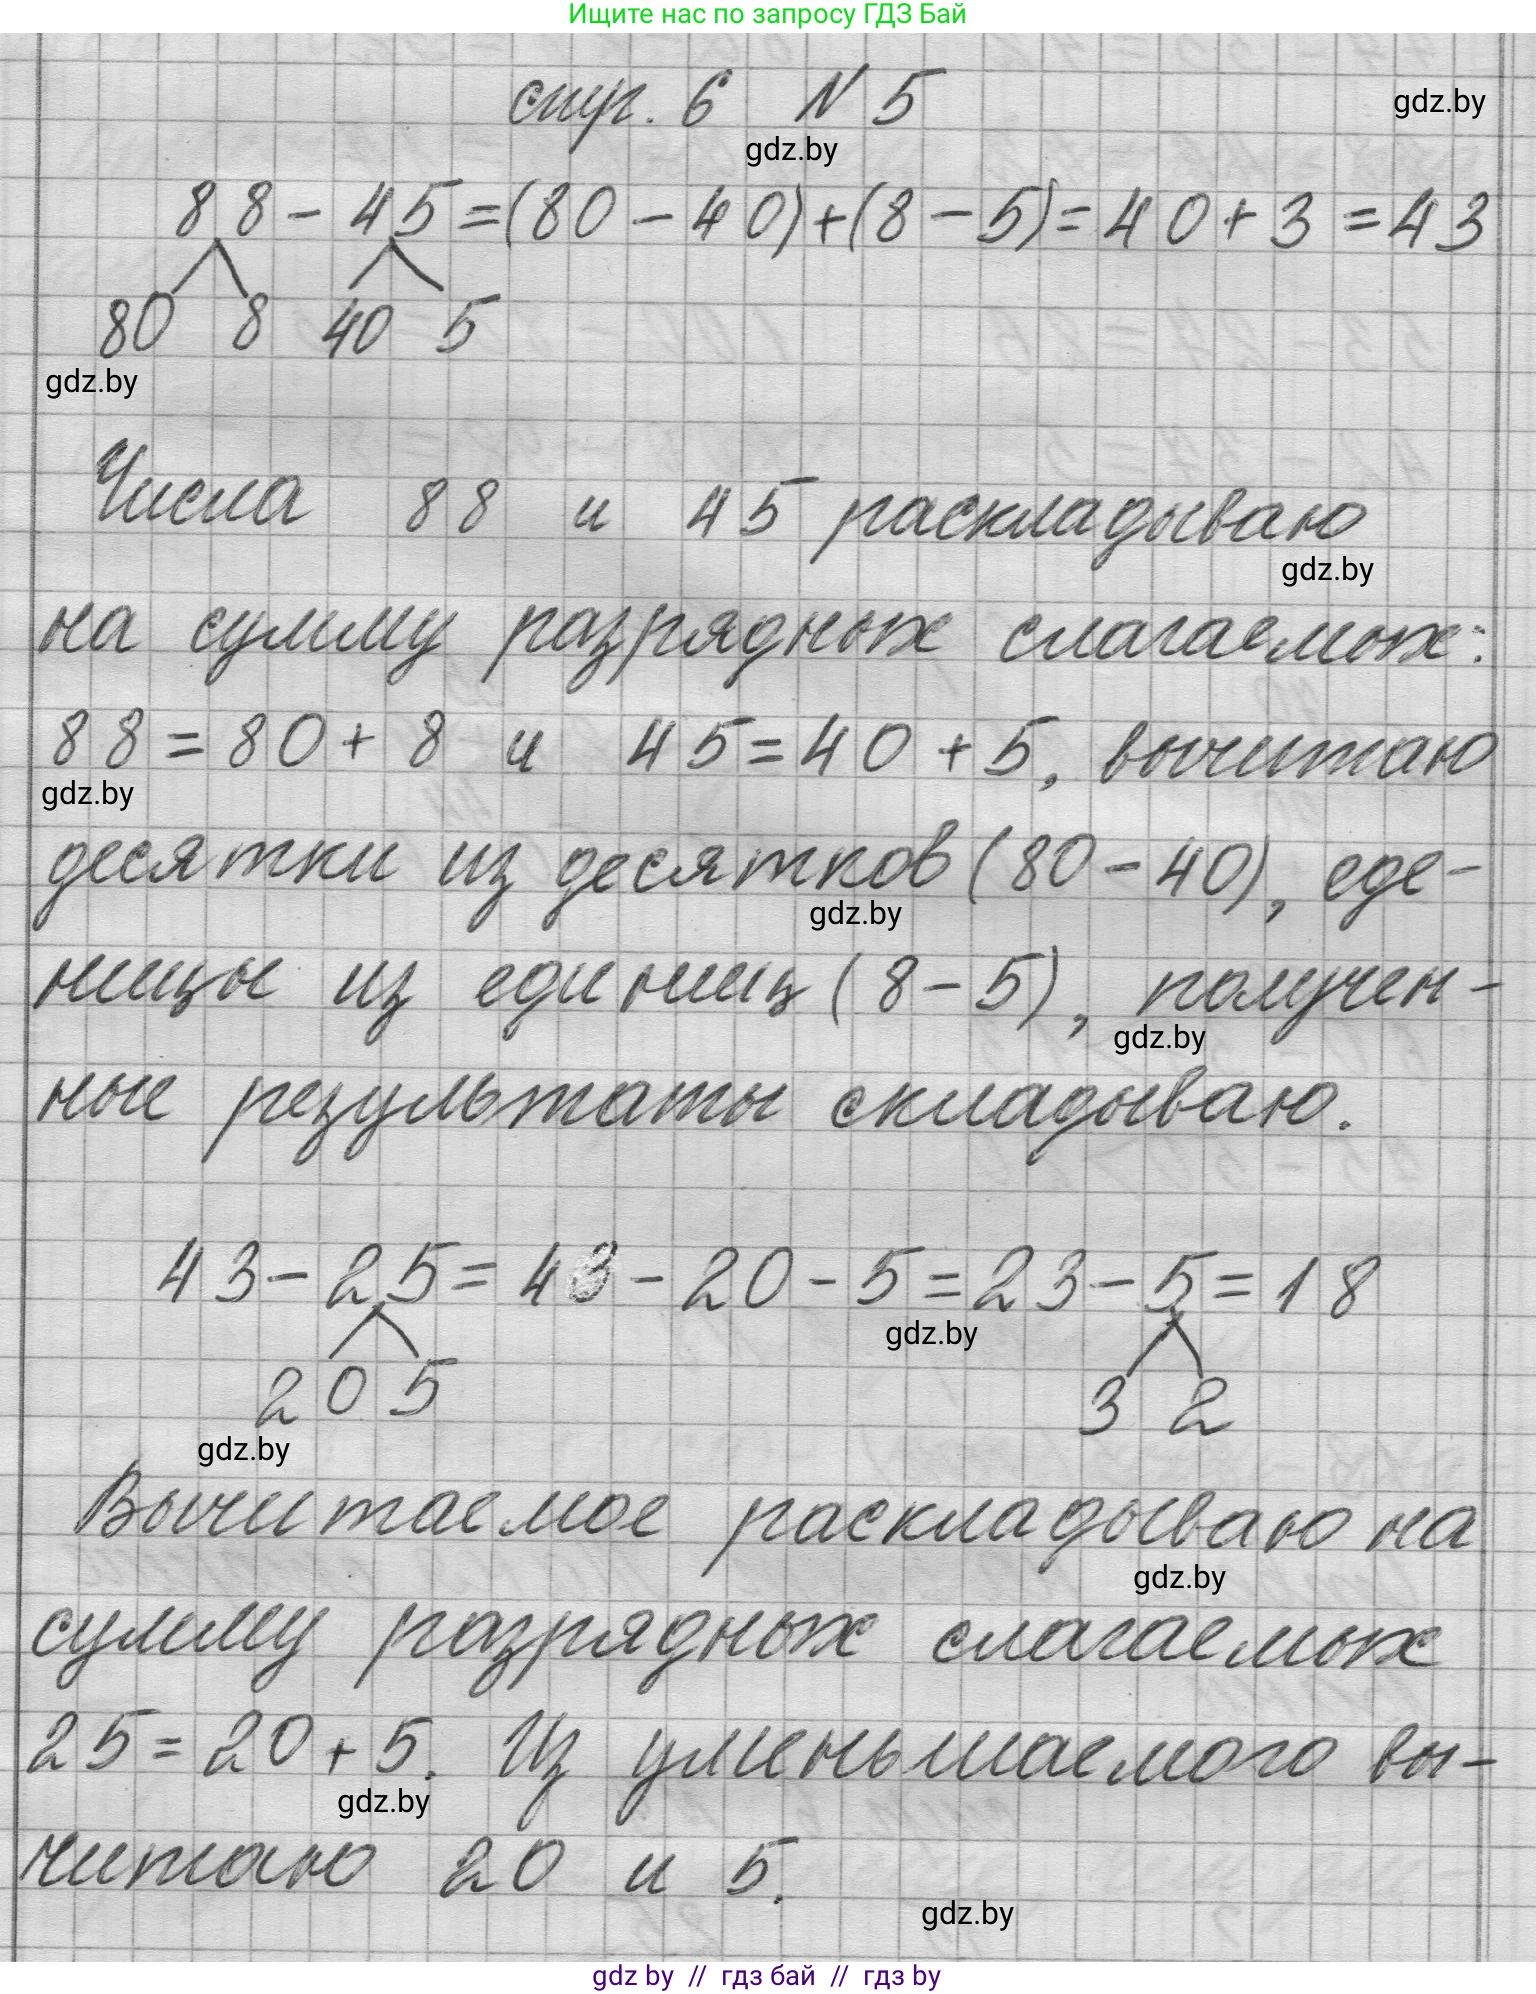 Ищите нас по запросу ГДЗ Бай
стр. 6 N 5
gdz.by
gdz.by
88 - 45 = (80 - 40) + (8 - 5) = 40 + 3 = 43
80 8 40 5
gdz.by
Числа 88 и 45 раскладываю
gdz.by
на сумму разрядных слагаемых:
88 = 80 + 8 и 45 = 40 + 5, вычитаю
gdz.by
десятки из десятков (80 - 40), еде-
gdz.by
ницы из единиц (8 - 5), получен-
gdz.by
ные результаты складываю.
43 - 25 = 43 - 20 - 5 = 23 - 5 = 18
gdz.by
20 5 3 2
gdz.by
Вычитаемое раскладываю на
gdz.by
сумму разрядных слагаемых
25 = 20 + 5. Из уменьшаемого вы-
gdz.by
читаю 20 и 5.
gdz.by
gdz by // гдз бай // гдз by